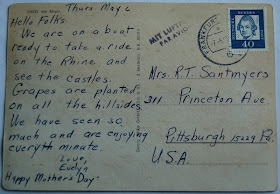 Thurs May 6
Hello Folks.
We are on a boat
ready to take a ride
on the Rhine and
see the Castles.
Grapes are planted
on all the hillsides
We have seen so
much and are enjoying
every minute.
Love,
Evelyn
Happy Mother's Day
MIT LUFTPOST
PAR AVION
FRANKFURT
DEUTSCHE
BUNDESPOST
40
Mrs. R.T. Santmyers
311 Princeton Ave
Pittsburgh 15229 Pa.
U.S.A.